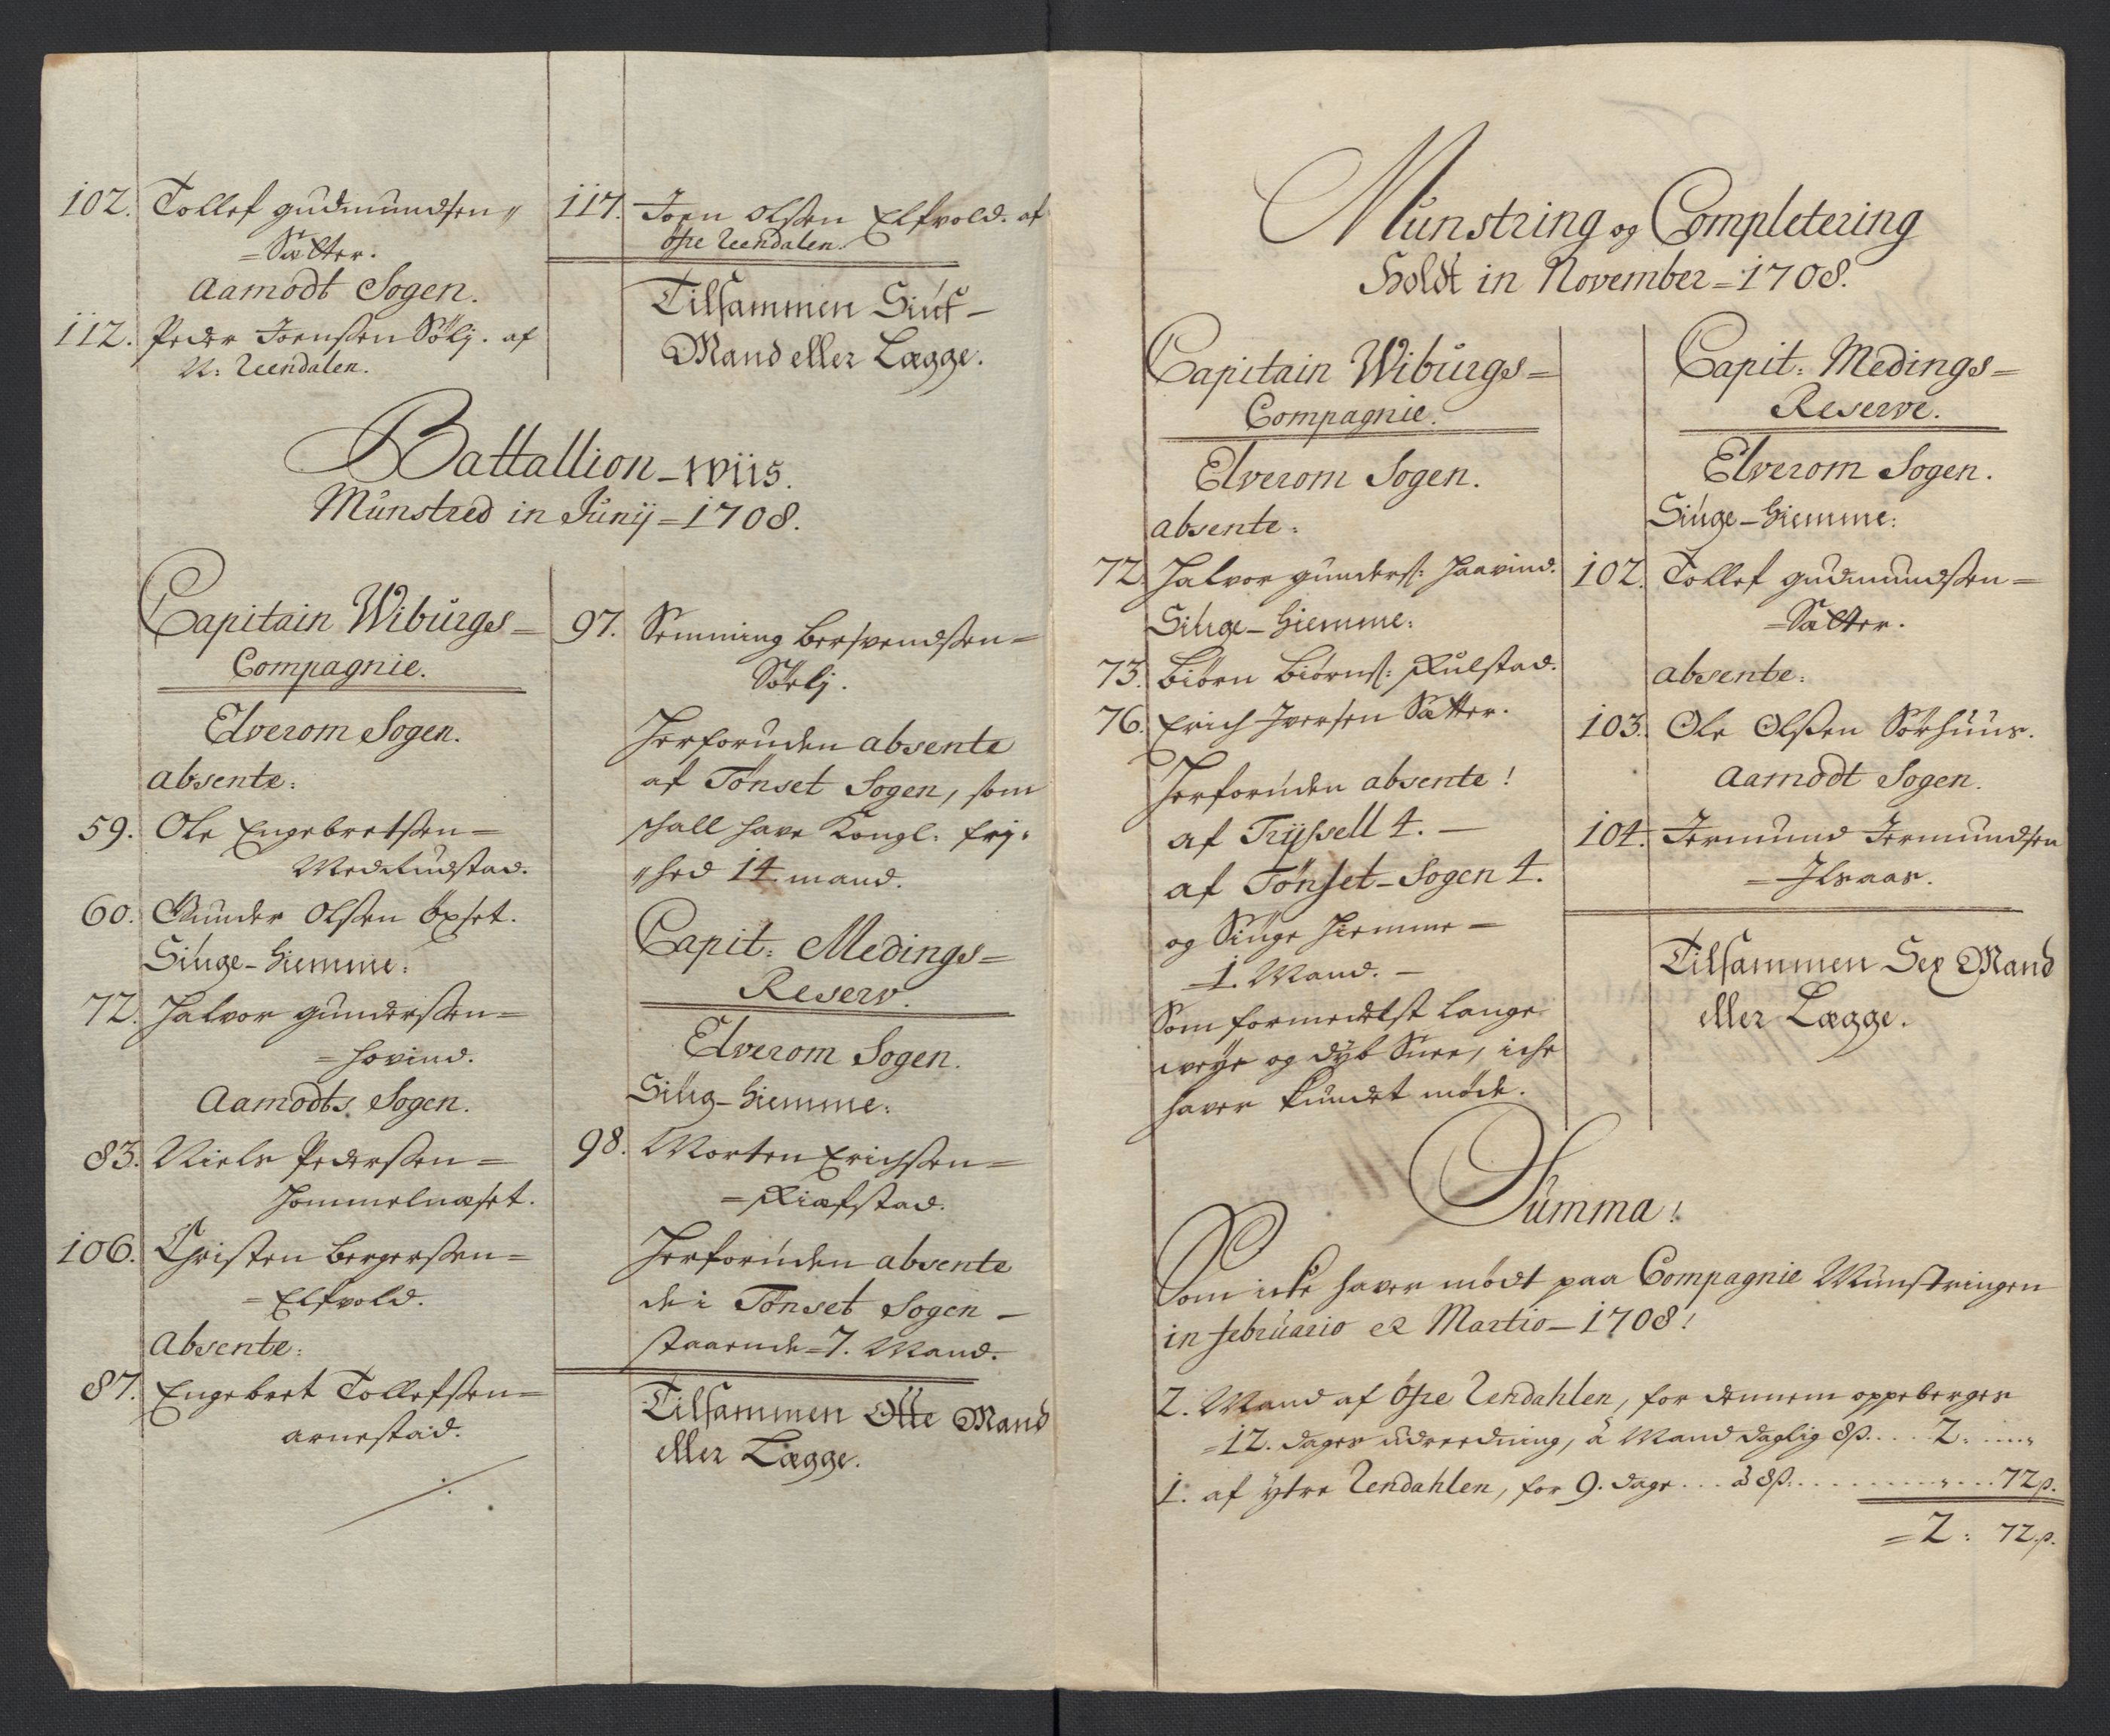 102. Tollef Gudmundsen
=Sætter.
Aamodt Sogen.
112. Peder Joensen Sölj. af
N: Reendalen.
117. Joen Olssen Elfvold. af
öfre Reendalen.
Tilsammen Siuf-
Mand eller Lægge.
Battallion-wiis.
Munstred in Junij=1708.
Capitain Wiburgs=
Compagnie.
Elverom Sogen.
absente:
59. Ole Engebretssen=
Medskudstad.
60. Gunder Olssen öxset.
Siuge-hiemme:
72. Halvor Gunderssen=
=Hovind.
Aamodts Sogen.
83. Niels Pederssen=
Hommelnæset.
106. Christen Bergerssen=
=Elfvold.
Absente:
87. Engebret Tollefssen=
arnestad.
97. Semming Bersvendssen=
Sörlj.
Herforuden absente
af Tönset Sogen, som
schall have Kongl: frj-
hed 14 mand.
Capit: Medings=
Reserv.
Elverom Sogen.
Siug-hiemme:
98. Morten Erichssen=
=Kiæfstad.
Herforuden absente
de i Tönset Sogen -
staaende=7. Mand.
Tilsammen Otte Mand
eller Lægge.
Munstring og Completering
Holdt in November=1708.
Capitain Wiburgs=
Compagnie.
Elverom Sogen.
absente:
72. Halvor Gunders: Haavind.
Siuge-hiemme:
73. Biörn Biörns: Kulstad.
76. Erich Iversen Sætter.
Herforuden absente!
af Trÿssell 4. -
af Tönset-Sogen 4.
og Siuge Hiemme -
=1. Mand. -
Som formedelst lange
weÿe og dÿb Snee, iche
haver kundet möde.
Capit: Medings=
Reserve.
Elverom Sogen.
Siuge-hiemme:
102. Tollef Gudmundssen=
=Sætter.
absente:
103. Ole Olssen Sörhuus.
Aamodt Sogen.
104. Jermund Jermundsen
=Ilsaas.
Tilsammen Sex Mand
eller Lægge.
Summa!
Som icke haver mödt paa Compagnie Munstringen
in Februario et Martio-1708!
2. Mand af Öfre Rendahlen, for dennem oppeberges
=12. dages udreedning, à Mand daglig 8β.... 2: ....
1. af ytre Rendahlen, for 9. dage... à 8β............72β.
=2: 72β.